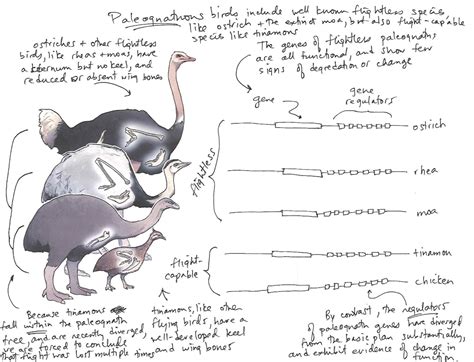 Paleognathous birds include well known flightless species
like ostrich + the extinct moa, but also flight-capable
species like tinamous
ostriches + other flightless
birds, like rheas + moas, have
a sternum but no keel, and
reduced or absent wing bones
The genes of flightless paleognaths
are all functional, and show few
signs of degredation or change
gene
gene
regulators
ostrich
rhea
moa
flightless
flight-
capable
tinamou
chicken
Because tinamous
fall within the paleognath
tree, and are recently diverged,
we are forced to conclude
that flight was lost multiple times
tinamous, like other
flying birds, have a
well-developed keel
and wing bones
By contrast, the regulators
of paleognath genes have diverged
from the basic plan substantially,
and exhibit evidence of change in
function